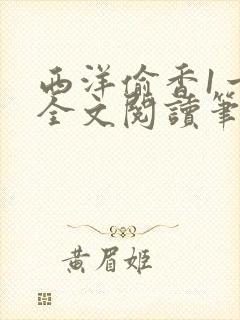 西洋偷香1一
全文閱讀筆
黃眉姬